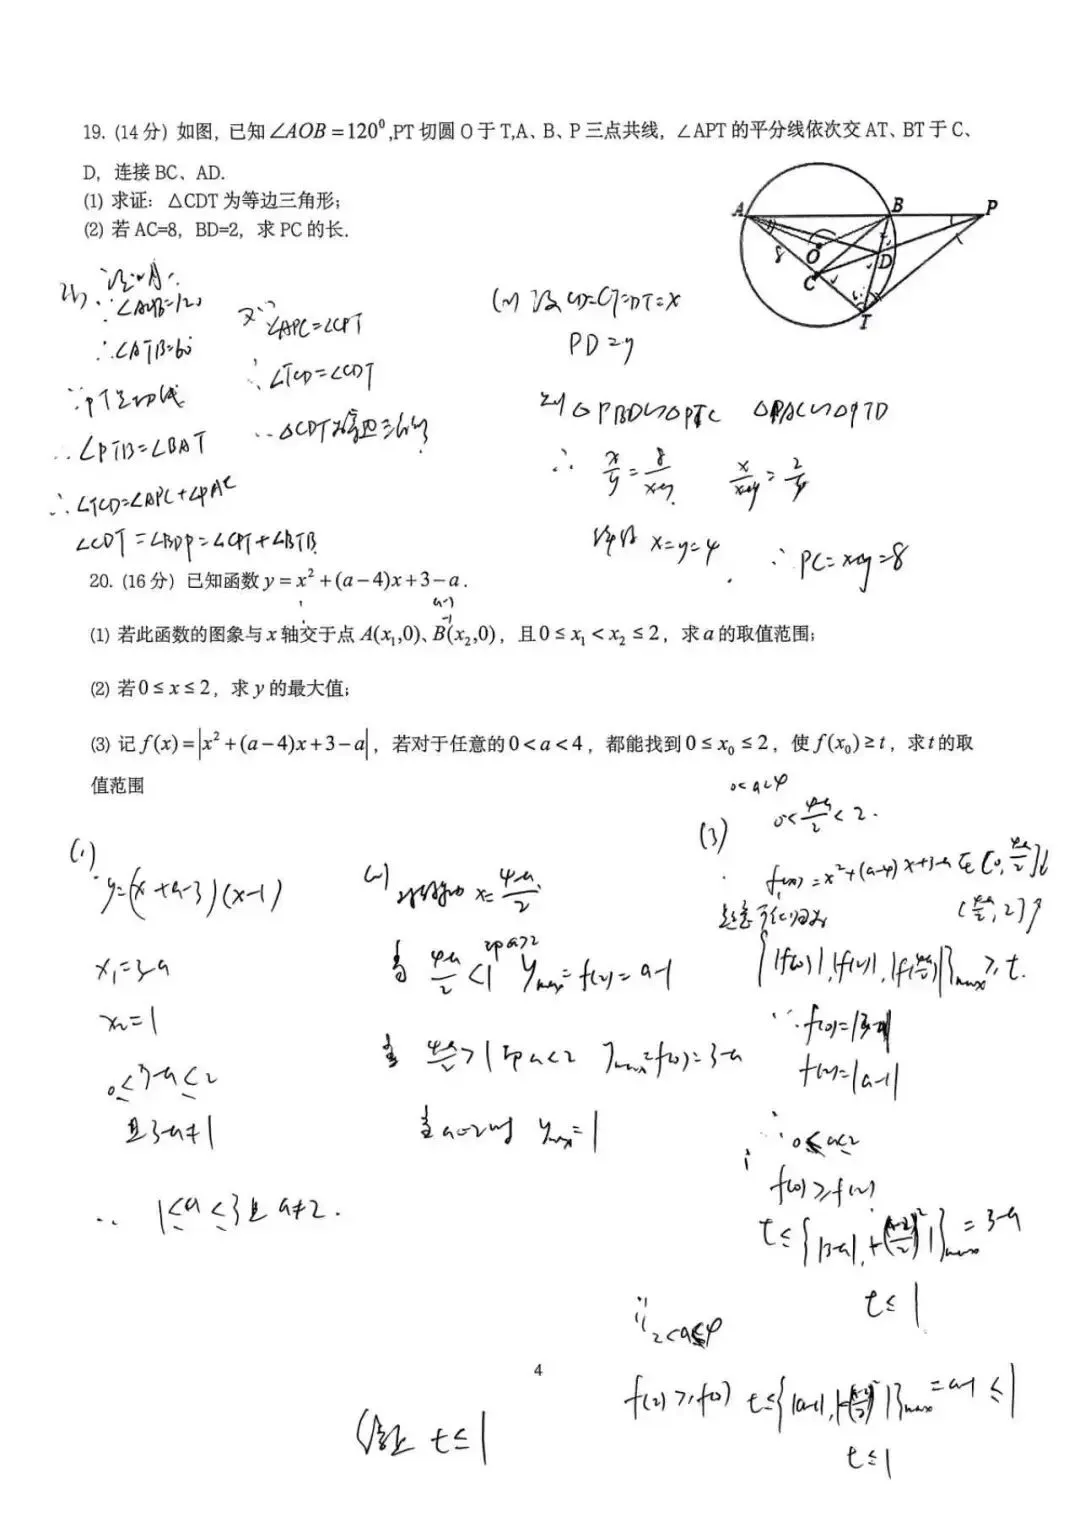 19. (14 分) 如图，已知 ∠AOB = 120⁰,PT 切圆 O 于 T,A、B、P 三点共线，∠APT 的平分线依次交 AT、BT 于 C、
D，连接 BC、AD.
(1) 求证：△CDT 为等边三角形；
(2) 若 AC=8，BD=2，求 PC 的长.
A
B
P
O
D
C
T
8
∵∠AOB=120
∴∠ATB=60
∵PT是切线
∴∠PTB=∠BAT
∴∠TCD=∠APC+∠PAC
∠CDT=∠BDP=∠CPT+∠BTB
又∵∠APC=∠CPT
∴∠TCD=∠CDT
∴△CDT为等边三角形
(2) 设CD=CT=DT=x
PD=y
则△PBD∽△PTC △PAC∽△PTD
∴ x/y = 8/x+y x/x+y = 2/y
解得 x=y=4
∴PC=x+y=8
20. (16 分) 已知函数 y = x² + (a − 4)x + 3 − a .
(1) 若此函数的图象与 x 轴交于点 A(x₁,0)、B(x₂,0)，且 0 ≤ x₁ < x₂ ≤ 2，求 a 的取值范围；
(2) 若 0 ≤ x ≤ 2，求 y 的最大值；
(3) 记 f(x) = |x² + (a − 4)x + 3 − a|，若对于任意的 0 < a < 4，都能找到 0 ≤ x₀ ≤ 2，使 f(x₀) ≥ t，求 t 的取
值范围
(1)
y=(x+a-3)(x-1)
x₁=3-a
x₂=1
0≤3-a≤2
且3-a≠1
∴ 1≤a≤3且a≠2.
(2) 对称轴 x=4-a/2
当 4-a/2 <1 即a>2 ymax=f(2)=a-1
当 4-a/2 >1 即a<2 ymax=f(0)=3-a
当a=2时 ymax=1
(3)
0<a<4
0<4-a/2<2.
f(x)=x²+(a-4)x+3-a 在[0,4-a/2]↓
(4-a/2,2]↑
{|f(0)|,|f(2)|,|f(4-a/2)|}max≥t.
∵f(0)=|3-a|
f(2)=|a-1|
i
0<a≤2
f(0)≥f(2)
=3-a
t≤1
ii
2<a<4
f(2)≥f(0)
=a-1
t≤1
综上 t≤1
4